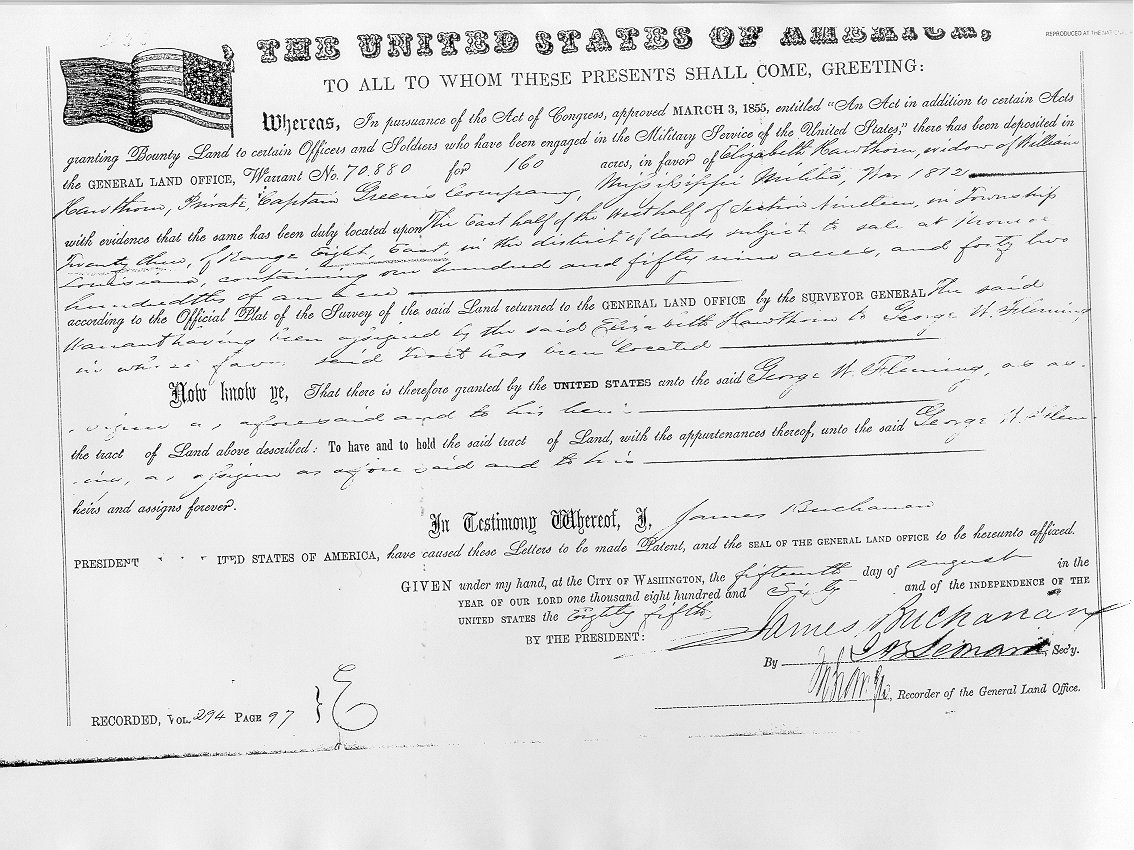 REPRODUCED AT THE NATIONAL
THE UNITED STATES OF AMERICA,
TO ALL TO WHOM THESE PRESENTS SHALL COME, GREETING:
Whereas, In pursuance of the Act of Congress, approved MARCH 3, 1855, entitled "An Act in addition to certain Acts
granting Bounty Land to certain Officers and Soldiers who have been engaged in the Military Service of the United States," there has been deposited in
the GENERAL LAND OFFICE, Warrant No. 70,880 for 160 acres, in favor of Elizabeth Hawthorn, widow of William
Hawthorn, Private, Captain Green's Company, Mississippi Militia, War 1812
with evidence that the same has been duly located upon The East half of the West half of Section Nineteen, in Township
Twenty One, of Range Eight, East, in the district of lands subject to sale at Monroe
Louisiana, containing one hundred and fifty nine acres, and forty two
hundredths of an acre
according to the Official Plat of the Survey of the said Land returned to the GENERAL LAND OFFICE by the SURVEYOR GENERAL The said
Warrant having been assigned by the said Elizabeth Hawthorn to George W. Fleming
in whose favor said tract has been located
Now know ye, That there is therefore granted by the UNITED STATES unto the said George W Fleming, as as-
signee as aforesaid and to his heirs
the tract of Land above described: To have and to hold the said tract of Land, with the appurtenances thereof, unto the said George W. Flem-
ing, as assignee as aforesaid and to his
heirs and assigns forever.
In Testimony Whereof, I, James Buchanan
PRESIDENT ITED STATES OF AMERICA, have caused these Letters to be made Patent, and the SEAL OF THE GENERAL LAND OFFICE to be hereunto affixed.
GIVEN under my hand, at the CITY OF WASHINGTON, the fifteenth day of August in the
YEAR OF OUR LORD one thousand eight hundred and Sixty and of the INDEPENDENCE OF THE
UNITED STATES the Eighty fifth
BY THE PRESIDENT: James Buchanan
By J. A. B. Leonard, Sec'y.
, Recorder of the General Land Office.
RECORDED, VOL. 294 PAGE 97 } E